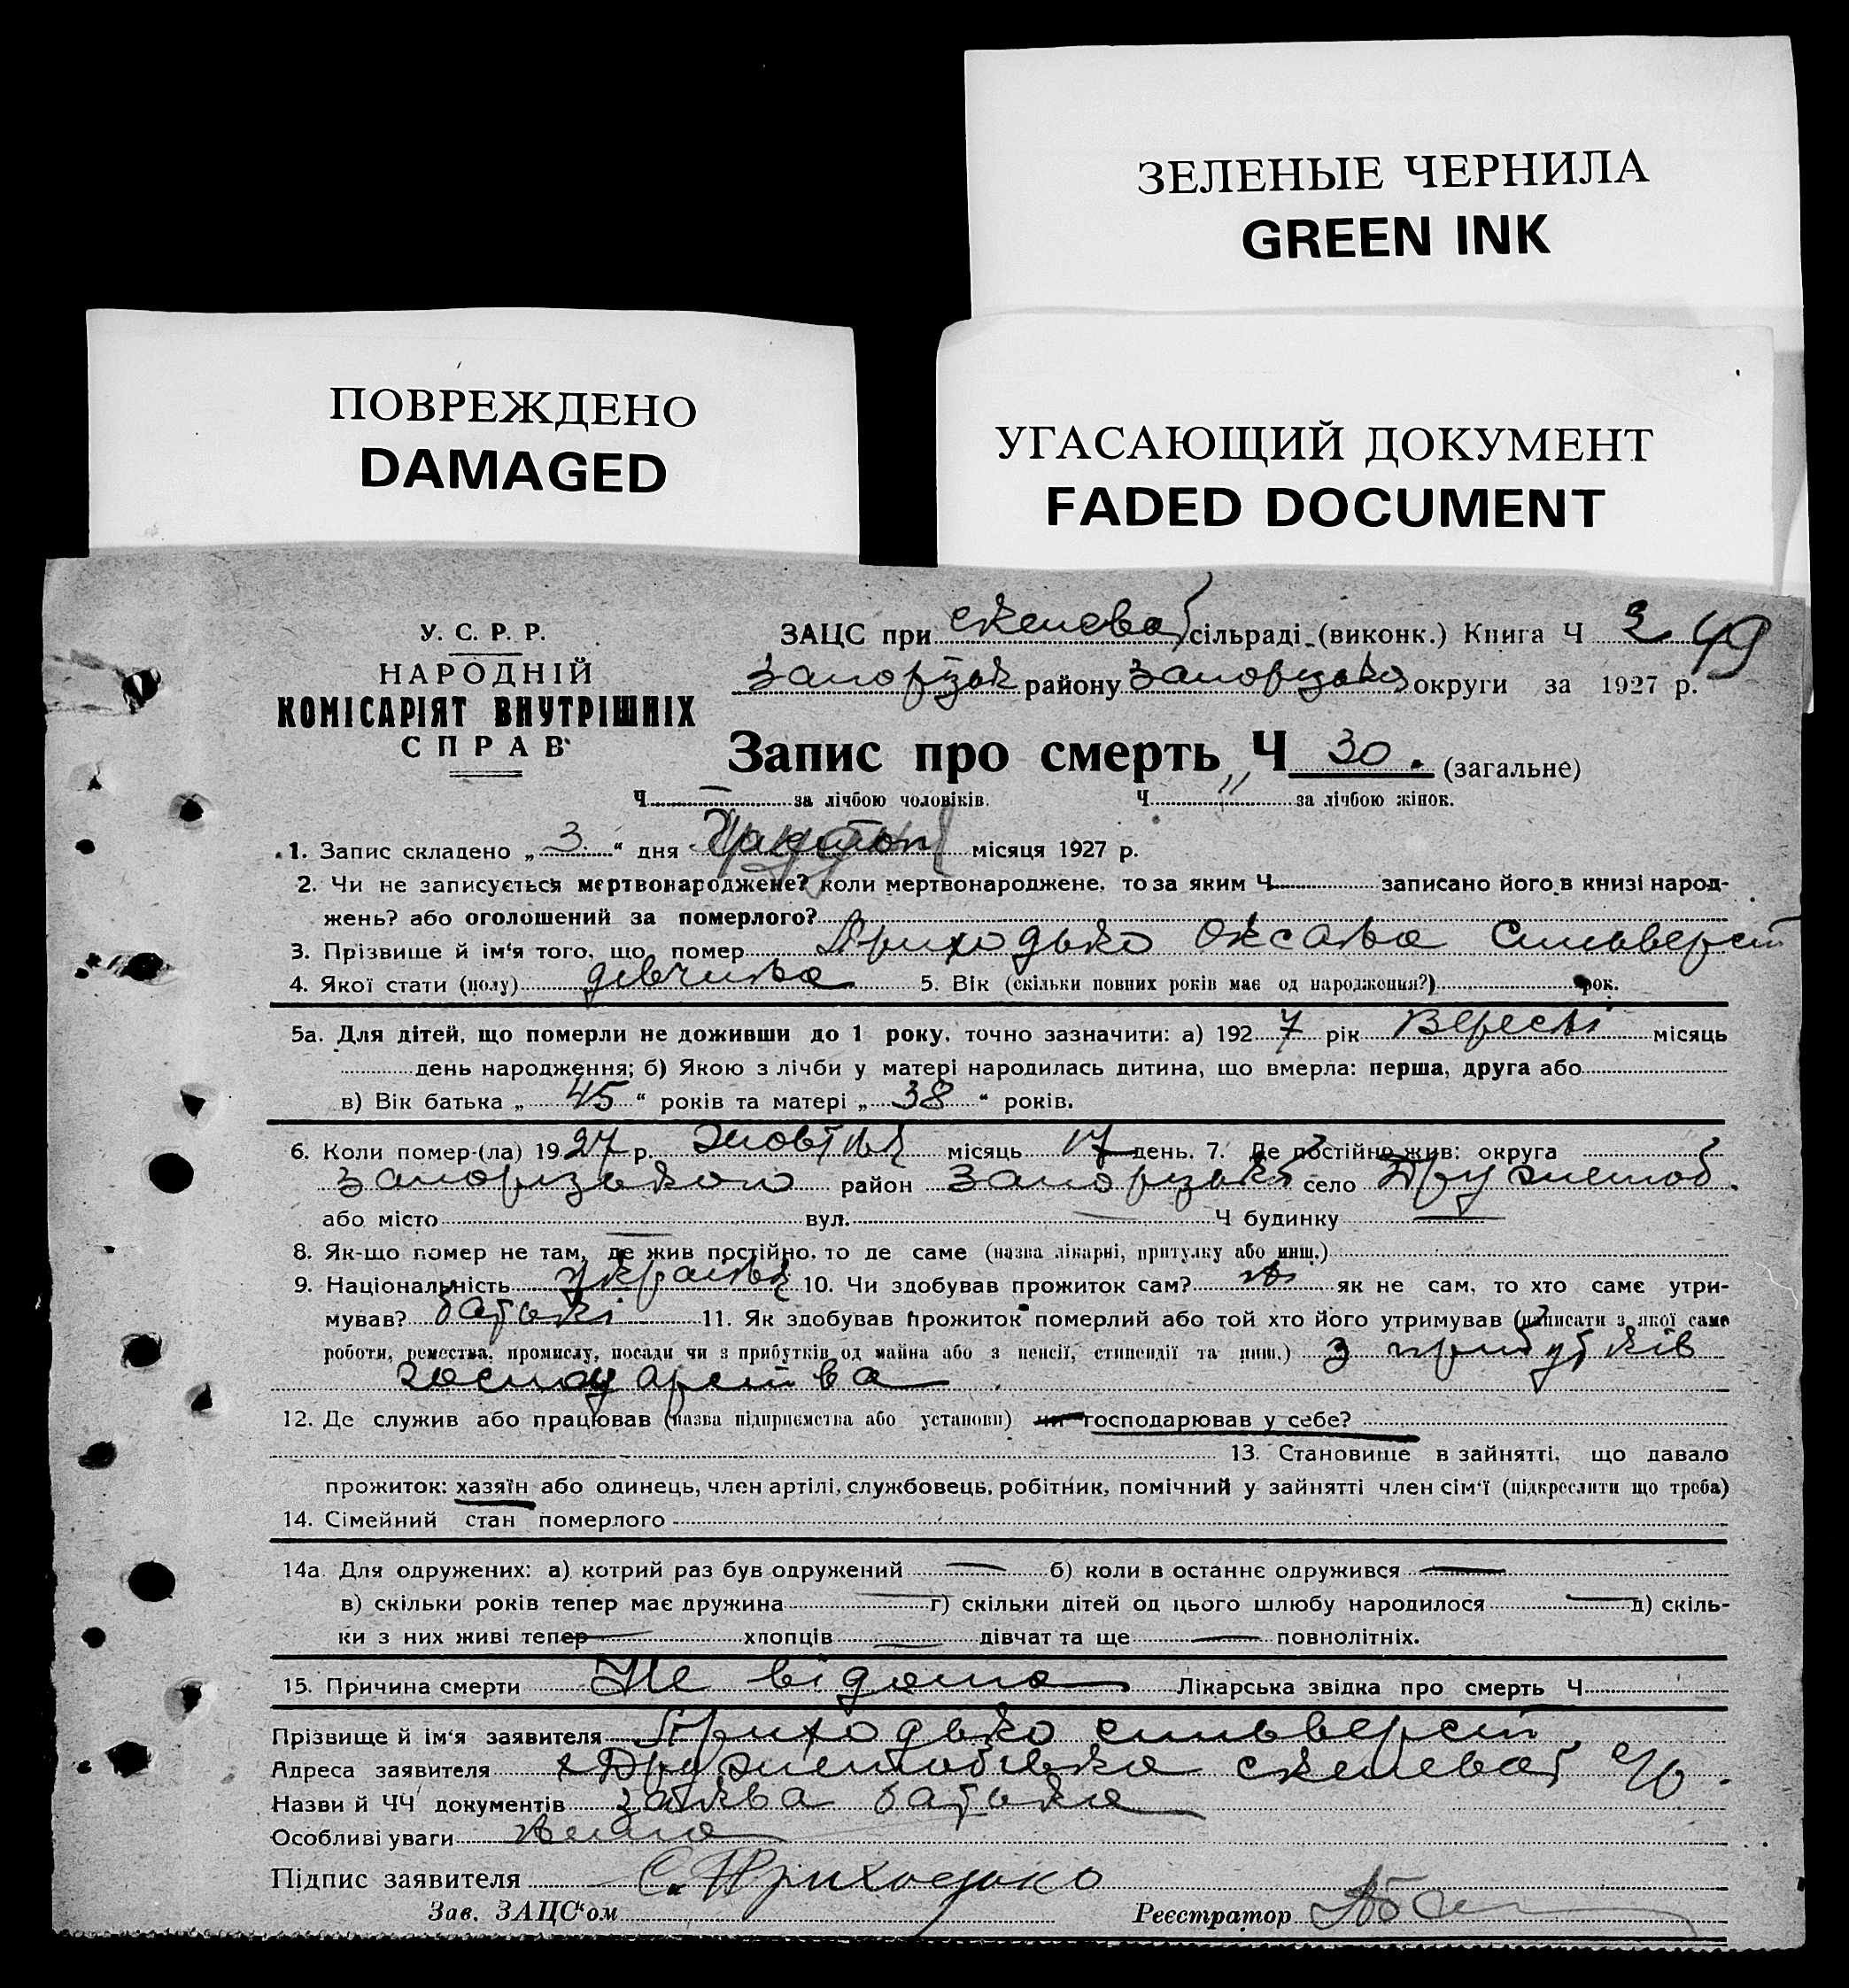 ЗЕЛЕНЫЕ ЧЕРНИЛА
GREEN INK
ПОВРЕЖДЕНО
DAMAGED
УГАСАЮЩИЙ ДОКУМЕНТ
FADED DOCUMENT
У. С. Р. Р.
НАРОДНІЙ
КОМІСАРІЯТ ВНУТРІШНІХ
СПРАВ
ЗАЦС при сільраді (виконк.) Книга Ч 3 49
Запорізьк району Запорізько округи за 1927 р.
Запис про смерть Ч 30. (загальне)
Ч — за лічбою чоловіків. Ч " за лічбою жінок.
1. Запис складено „ 3 “ дня місяця 1927 р.
2. Чи не записується мертвонароджене? коли мертвонароджене, то за яким Ч записано його в книзі народ-
жень? або оголошений за померлого?
3. Прізвище й ім'я того, що помер Приходько Оксана Сильверст
4. Якої стати (полу) дівчина 5. Вік (скільки повних років має од народження?) рок.
5а. Для дітей, що померли не доживши до 1 року, точно зазначити: а) 1927 рік Вересні місяць
день народження; б) Якою з лічби у матері народилась дитина, що вмерла: перша, друга або
в) Вік батька „ 45 “ років та матері „ 38 “ років.
6. Коли помер-(ла) 1927 р. місяць 17 день. 7. Де постійно жив: округа
Запорізькою район Запорізькі село
або місто вул. — Ч будинку —
8. Як-що помер не там, де жив постійно, то де саме (назва лікарні, притулку або инш.)
9. Національність 10. Чи здобував прожиток сам? ні як не сам, то хто саме утри-
мував? батькі 11. Як здобував прожиток померлий або той хто його утримував (написати з якої саме
роботи, ремества, промислу, посади чи з прибутків од майна або з пенсії, стипендії та инш.) з прибутків
господарства
12. Де служив або працював (назва підприємства або установи) чи господарював у себе?
13. Становище в зайнятті, що давало
прожиток: хазяїн або одинець, член артілі, службовець, робітник, помічний у зайнятті член сім'ї (підкреслити що треба)
14. Сімейний стан померлого
14а. Для одружених: а) котрий раз був одружений — б) коли в останнє одружився —
в) скільки років тепер має дружина — г) скільки дітей од цього шлюбу народилося — д) скіль-
ки з них живі тепер — хлопців — дівчат та ще — повнолітніх.
15. Причина смерти Не відома Лікарська звідка про смерть Ч
Прізвище й ім'я заявителя Приходько Сильверст
Адреса заявителя х Дружелюбівка
Назви й ЧЧ документів заявка батька
Особливі уваги нема
Підпис заявителя С. Приходько
Зав. ЗАЦС'ом Реєстратор